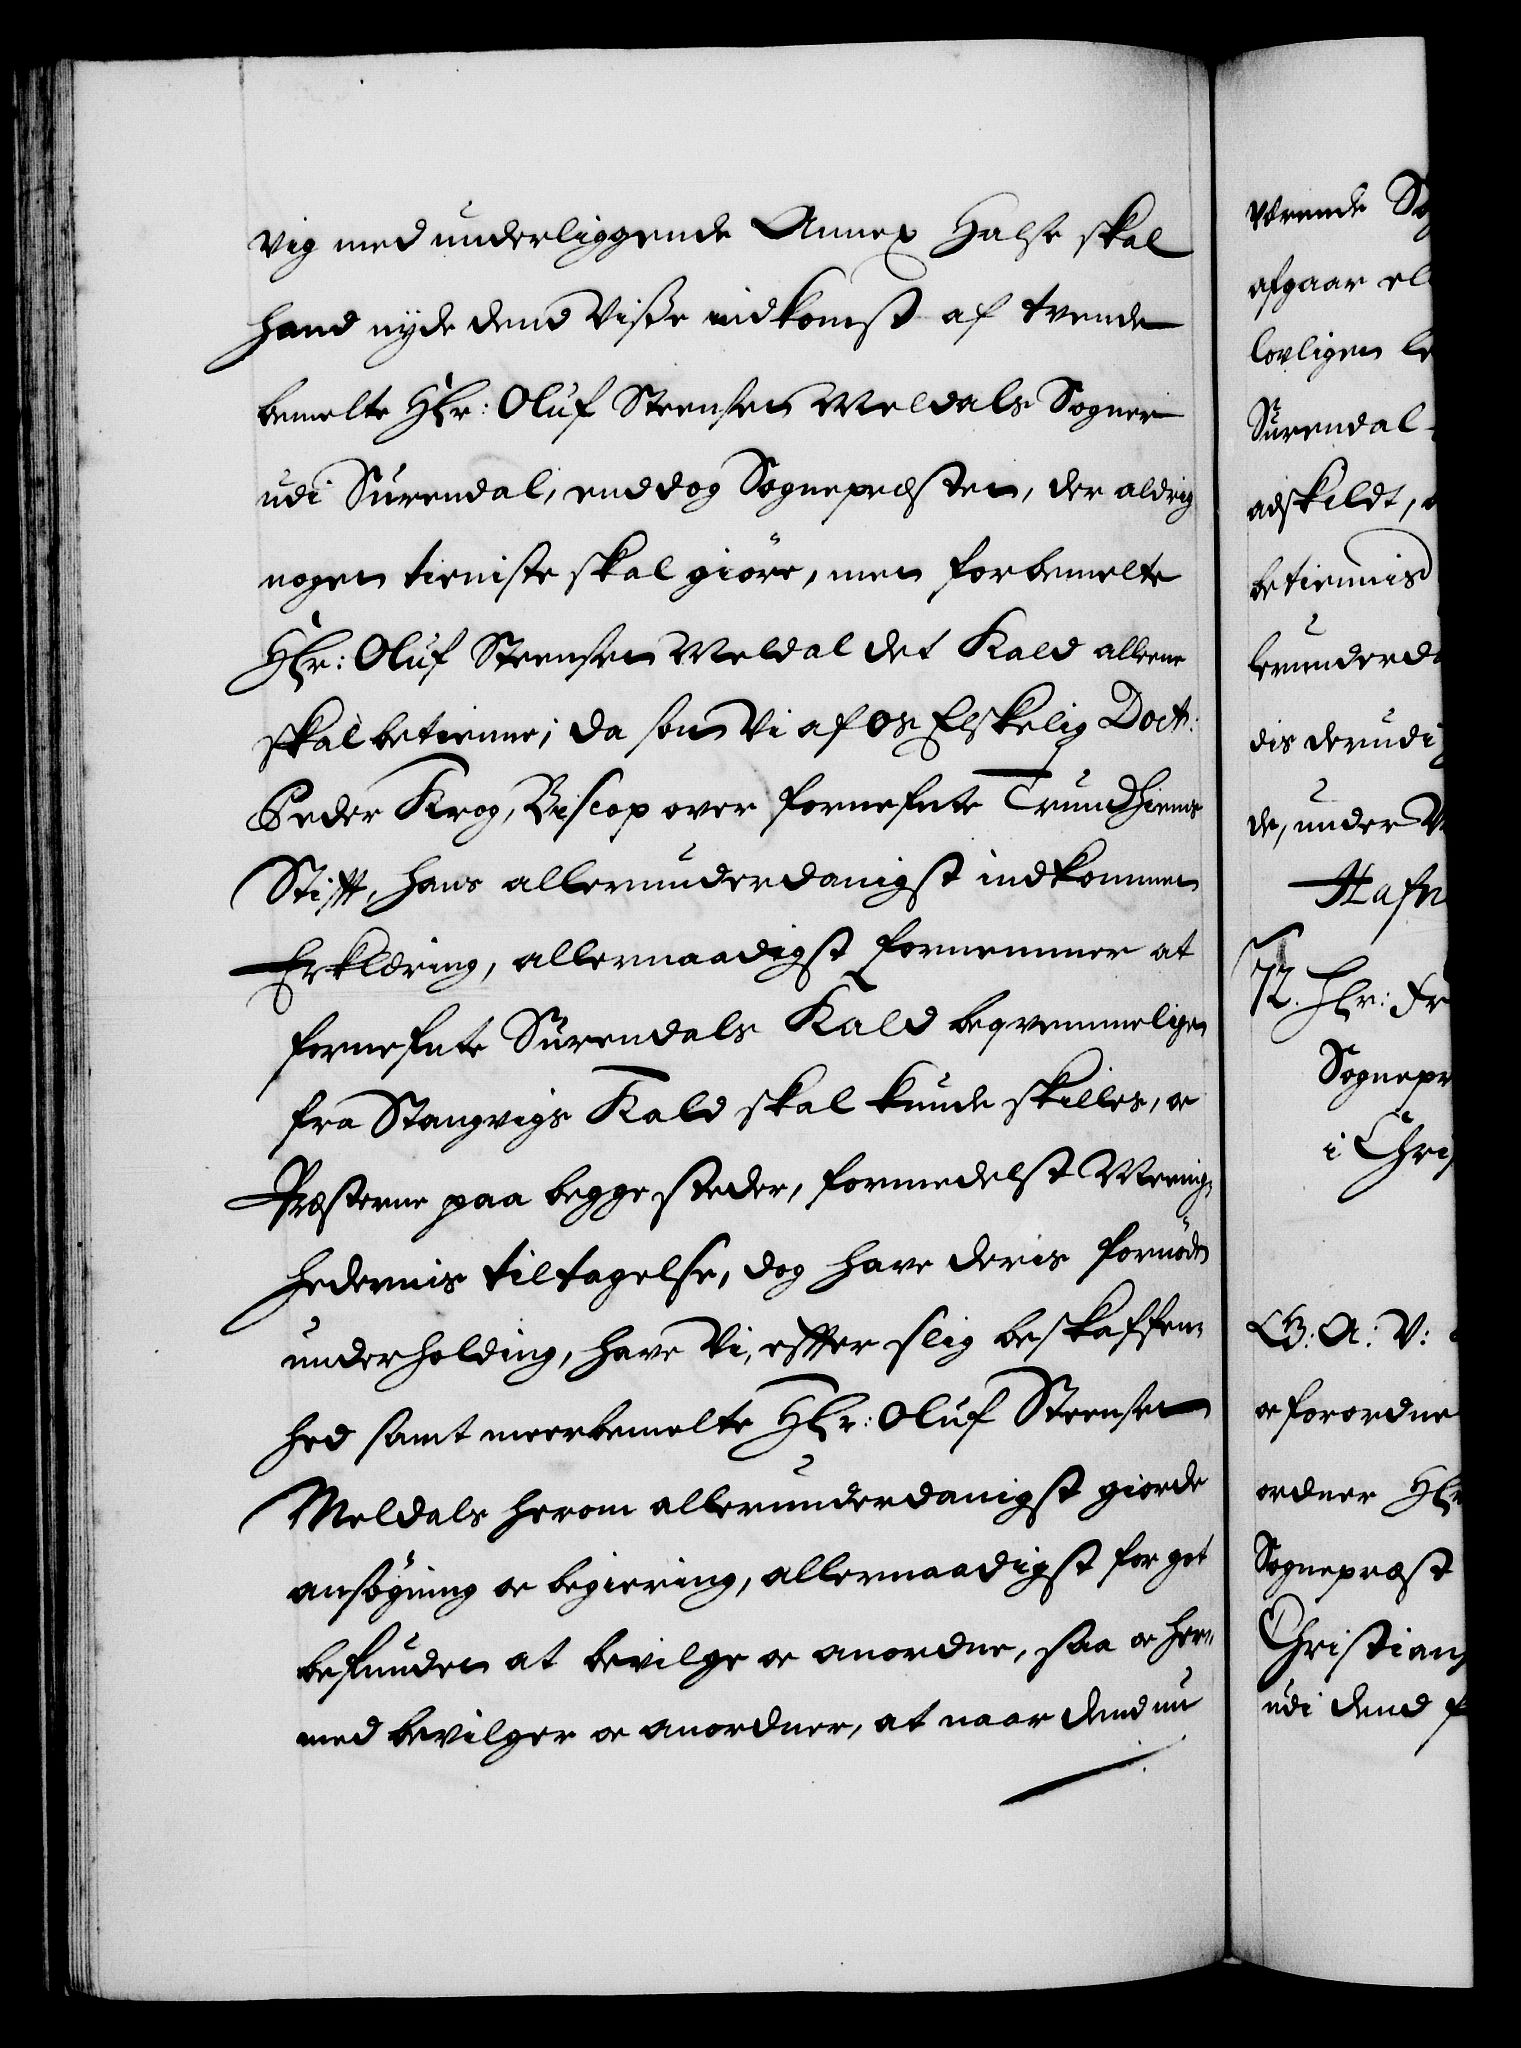 vig med underliggende Annex Halse skal
hand nyde dend Visse indkomst af tvende
bemelte Hr: Oluf Steensen Meldals Sogner
udi Surendal, enddog Sognepræsten, der aldrig
nogen tieniste skal giöre, men forbemelte
Hr: Oluf Steensen Meldal det Kald alleene
skal betienne; da som Vi af os Elskelig Doct:
Peder Krog, Biscop over fornefnte Trundhiems
Stift, hans allerunderdanigst indkommen
Erklæring, allernaadigst fornemmer at
fornefnte Surendals Kald beqvemmeligen
fra Stangvigs Kald skal kunde skilles, oc
Præsterne paa begge steder, formedelst Meenig-
hedernis tiltagelse, dog have deris fornödn
underholding, have Vi, efter slig beskaffen-
hed samt meerbemelte Hr: Oluf Steensen
Meldals herom allerunderdanigst giorde
ansögning oc begiering, allernaadigst for got
befunden at bevilge oc anordne, saa oc her-
med bevilger oc anordner, at naar dend nu
værende Sog
afgaar el
lovligen le
Surendal
adskildt,
betiennis
lerunderda
dis derudi
de, under V
Hafn
72. Hr: Fr
Sognepr
i Chris
C5: A: V:
oc forordne
ordner Hr
Sognepræst
Christians
udi dend f